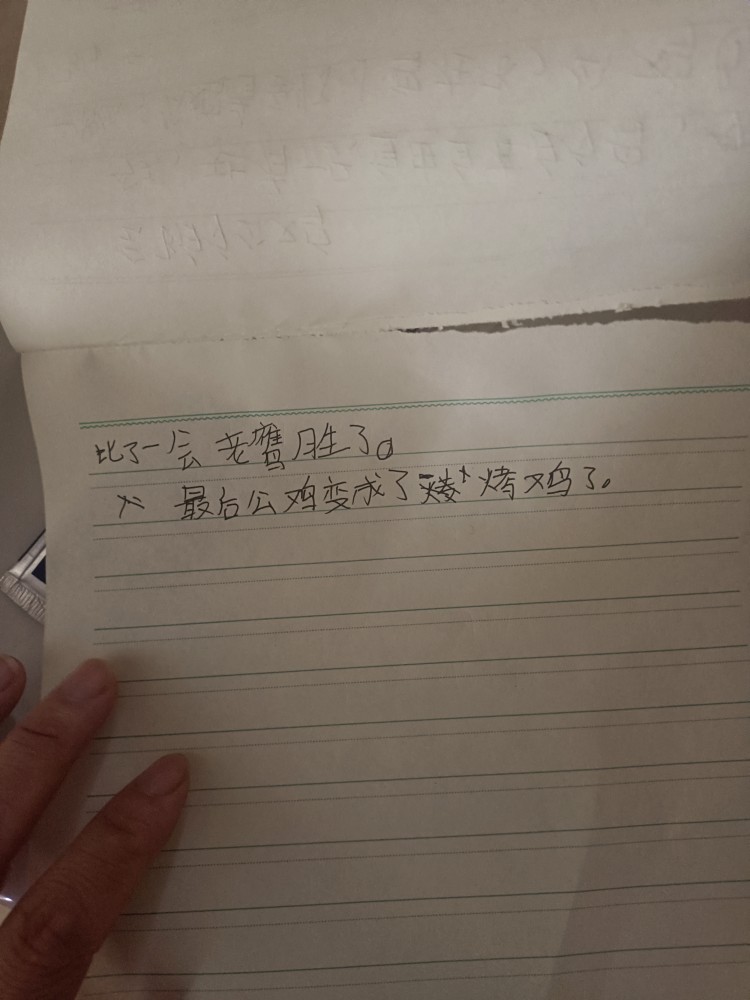 比了一会老鹰胜了。
最后公鸡变成了烤鸡了。